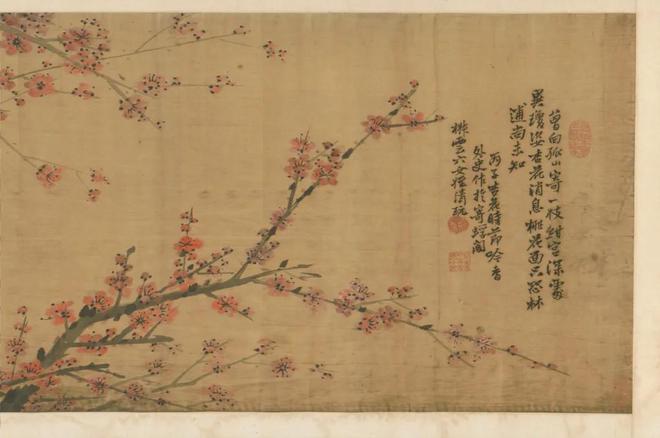 曾向孤山寄一枝紺宮深處
異瓊姿杏花消息桃花面只恐林
逋尚未知
丙子杏花時節吟香
外史作於寄閣
雲六女清玩